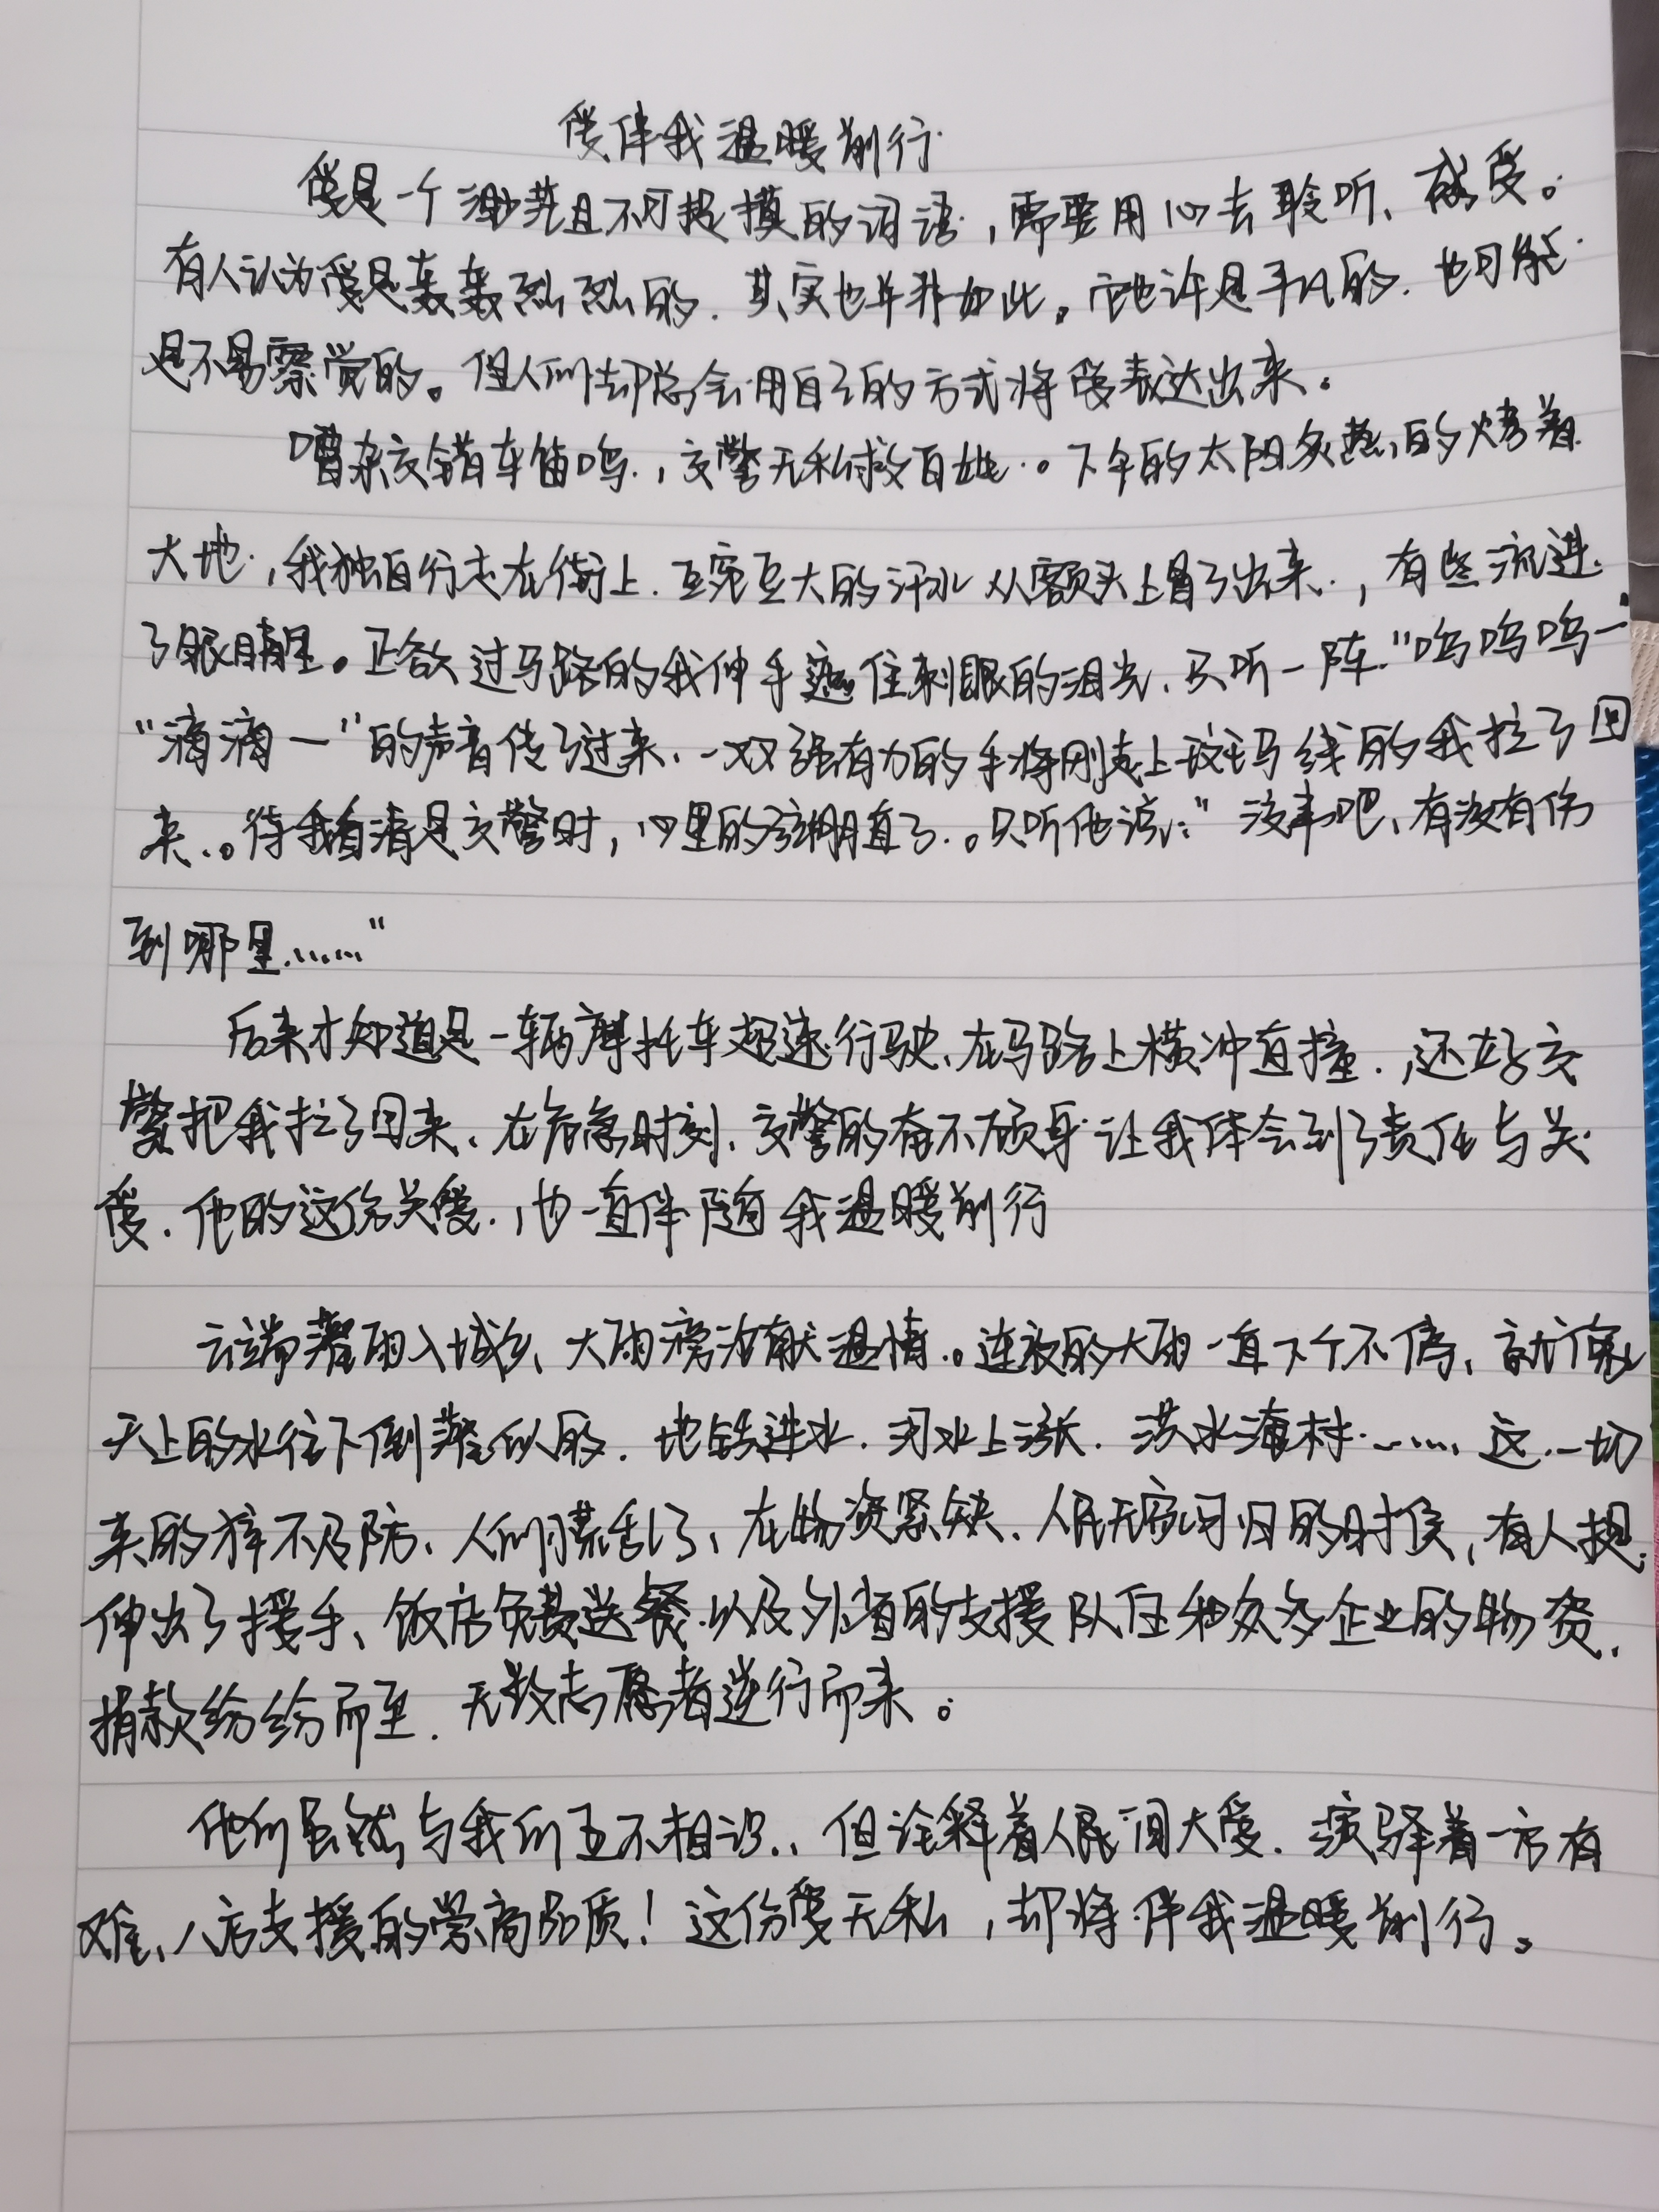 爱伴我温暖前行
爱是一个渺茫且不可捉摸的词语，需要用心去聆听、感受。
有人认为爱是轰轰烈烈的，其实也并非如此。它也许是平凡的，也可能
是不易察觉的。但人们却总会用自己的方式将爱表达出来。
嘈杂交错车笛鸣，交警无私救百姓。下午的太阳炙热的烤着
大地，我独自行走在街上，豆大的汗水从额头上冒了出来，有些流进
了眼睛里。正欲过马路的我伸手遮住刺眼的阳光，只听一阵“呜呜呜—
“滴滴一”的声音传了过来，一双强有力的手将刚走上斑马线的我拉了回
来。待我看清是交警时，心里的弦绷直了。只听他说：“没事吧，有没有伤
到哪里……”
后来才知道是一辆摩托车超速行驶，在马路上横冲直撞，还好交
警把我拉了回来，在危急时刻，交警的奋不顾身让我体会到了责任与关
爱，他的这份关爱，也一直伴随我温暖前行
云端落雨入城乡，大雨滂沱献温情。连夜的大雨一直下个不停，就像
天上的水往下倒灌似的，地铁进水，河水上涨，洪水淹村……这一切
来的猝不及防，人们慌乱了，在物资紧缺，人民无家可归的时候，有人
伸出了援手，饭店免费送餐以及外省的支援队伍和众多企业的物资，
捐款纷纷而至，无数志愿者逆行而来。
他们虽然与我们互不相识，但诠释着人民间大爱，演绎着一方有
难，八方支援的崇高品质！这份爱无私，却将伴我温暖前行。